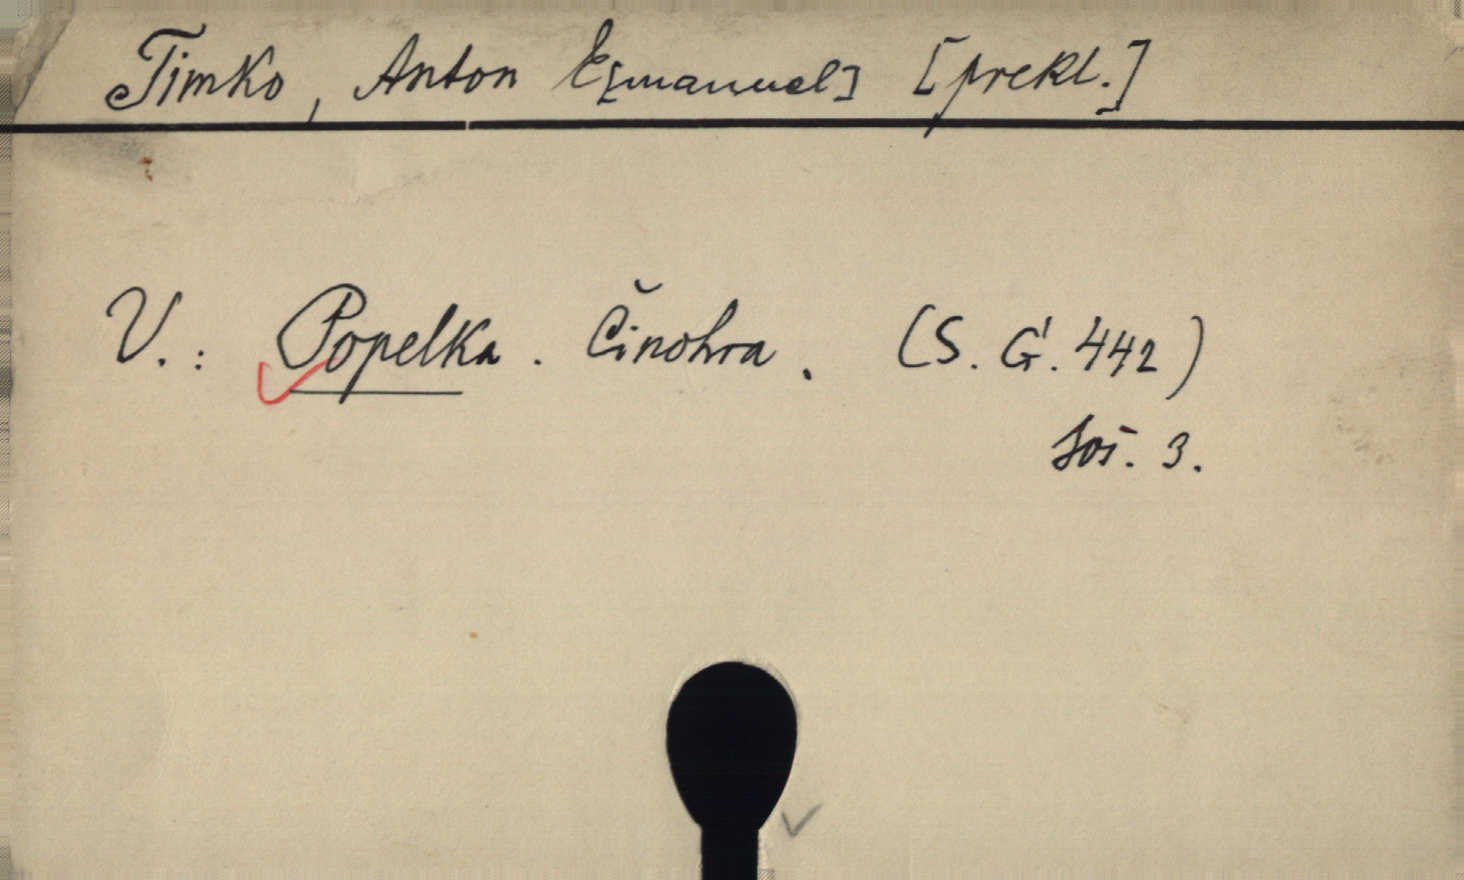 Timko, Anton E[manuel] [prekl.]
V.: Popelka. Činohra. (S. G. 442)
Soš. 3.